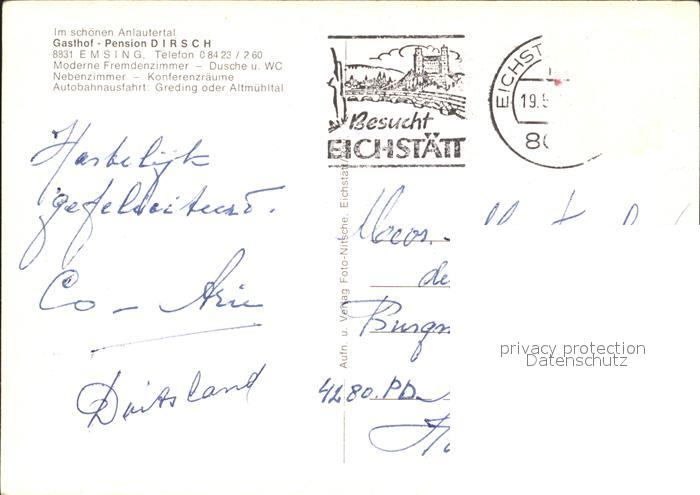 Im schönen Anlautertal
Gasthof - Pension DIRSCH
8831 EMSING, Telefon 0 84 23 / 2 60
Moderne Fremdenzimmer – Dusche u. WC
Nebenzimmer – Konferenzräume
Autobahnausfahrt: Greding oder Altmühltal
Besucht
EICHSTÄTT
EICHST
19.5
80
Hartelijk
gefeliciteerd.
Co – Arie
Duitsland
Aufn. u. Verlag Foto-Nitsche, Eichstätt
de
Burgm
4280.PD
privacy protection
Datenschutz